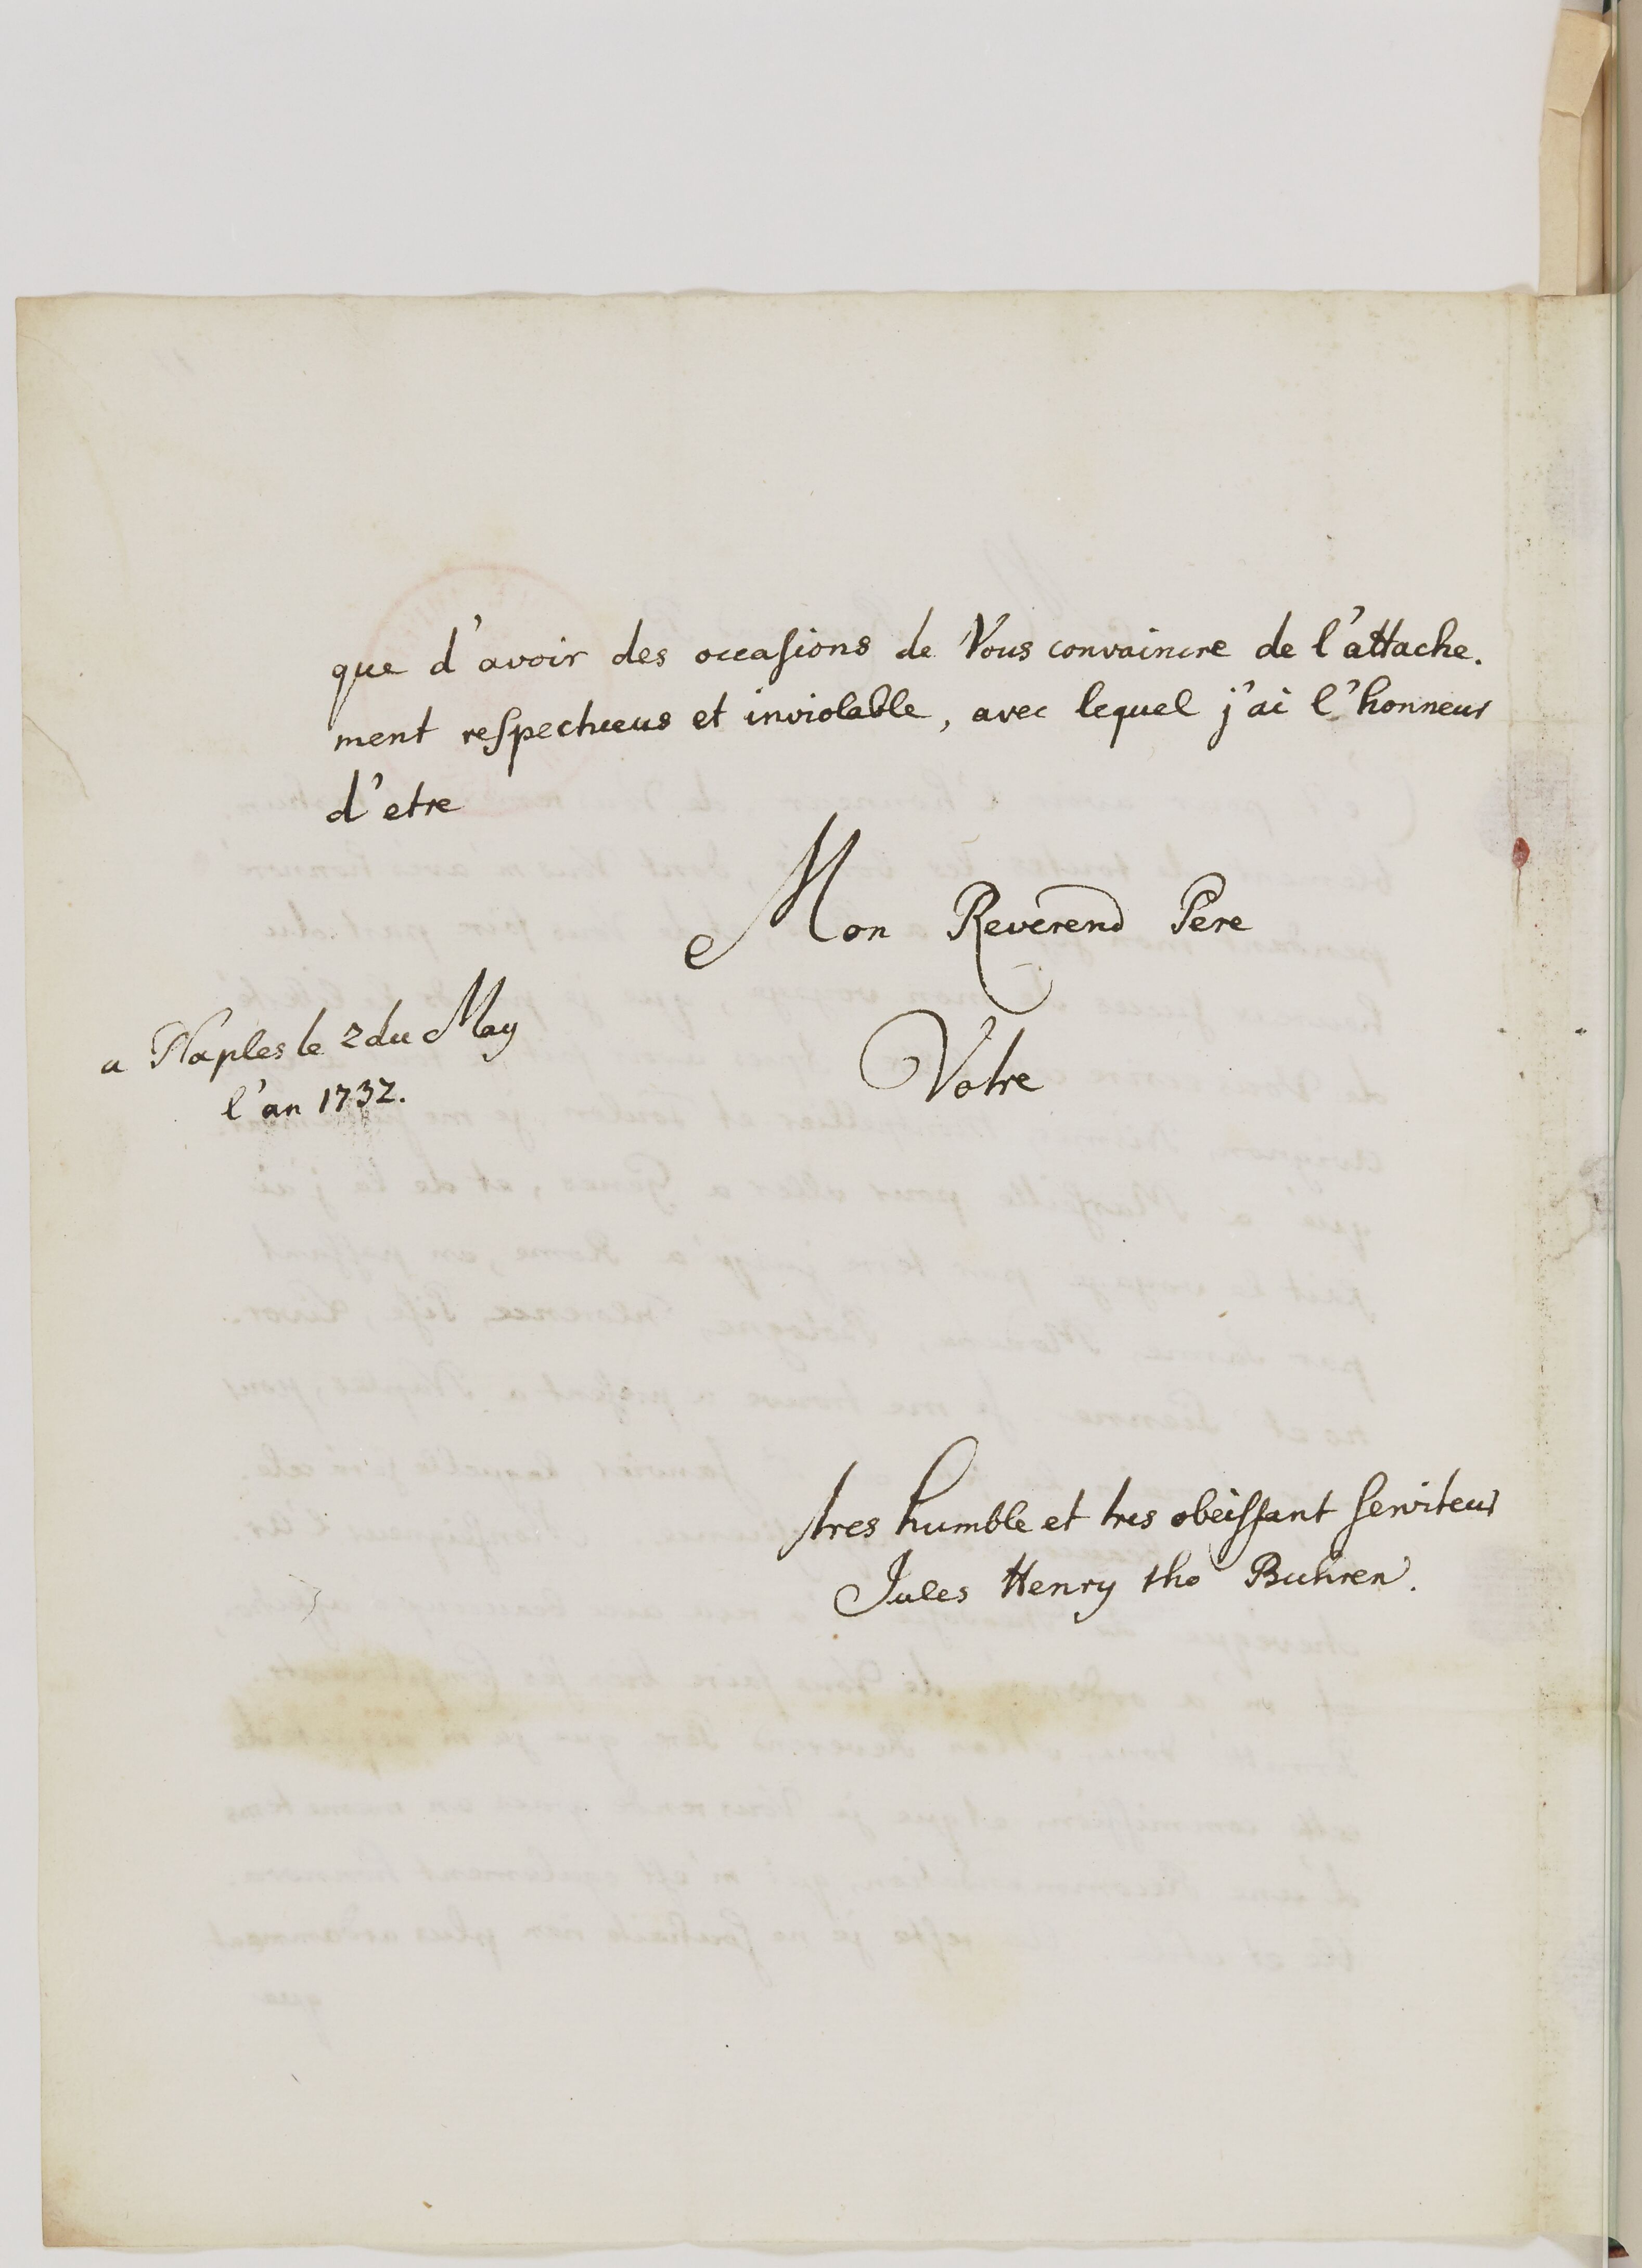 que d'avoir des occasions de Vous convaincre de l'attache.
ment respectueus et inviolable, avec lequel j'ai l'honneur
d'etre
Mon Reverend Pere
a Naples le 2 du May
l'an 1732.
Votre
tres humble et tres obeissant serviteur
Jules Henry tho Buhren.